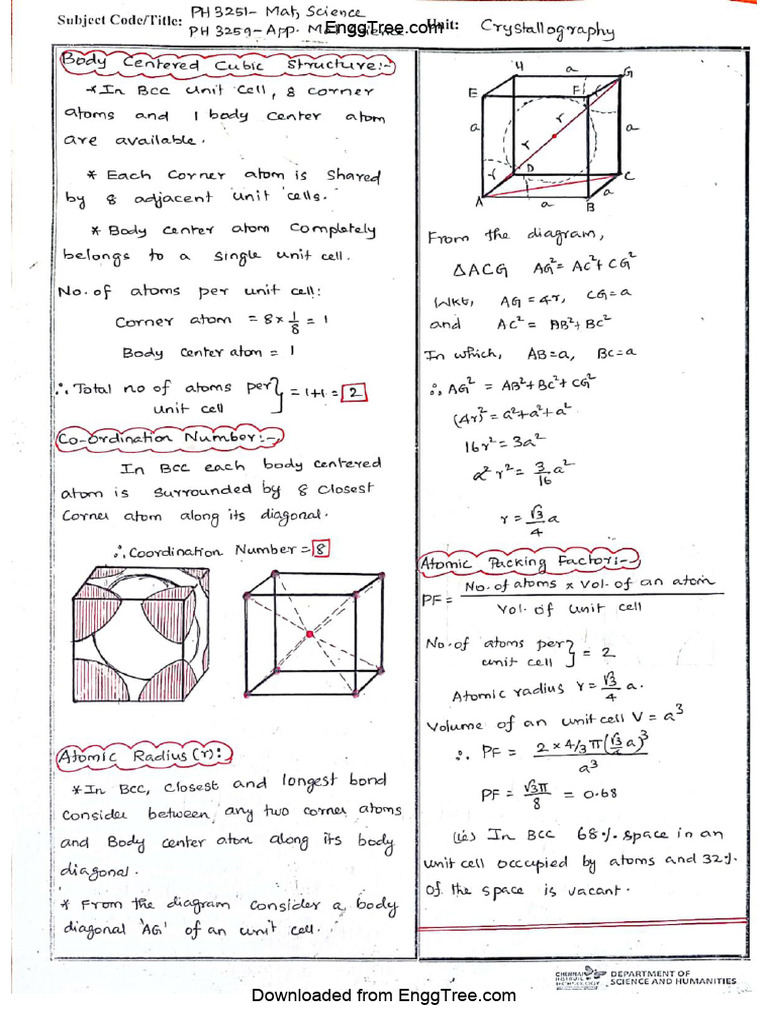 Subject Code/Title: PH 3251- Mat, Science
PH 3259-App. Mat. Science
EnggTree.com
Unit: Crystallography
Body Centered Cubic Structure:-
* In BCC unit cell, 8 corner
atoms and 1 body center atom
are available.
* Each Corner atom is shared
by 8 adjacent unit cells.
* Body center atom completely
belongs to a single unit cell.
No. of atoms per unit cell:
Corner atom = 8 × 1/8 = 1
Body center atom = 1
∴ Total no of atoms per
unit cell } = 1+1 = 2
Co-ordination Number:-
In BCC each body centered
atom is surrounded by 8 closest
corner atom along its diagonal.
∴ Coordination Number = 8
Atomic Radius (r):
* In BCC, closest and longest bond
consider between any two corner atoms
and Body center atom along its body
diagonal.
* From the diagram consider a body
diagonal 'AG' of an unit cell.
H a G
E F
a r a
r
r D C
A a B a
From the diagram,
△ACG AG² = AC² + CG²
WKT, AG = 4r, CG = a
and AC² = AB² + BC²
In which, AB = a, BC = a
∴ AG² = AB² + BC² + CG²
(4r)² = a² + a² + a²
16r² = 3a²
a² r² = 3/16 a²
r = √3/4 a
Atomic Packing Factor:-
PF = No. of atoms × Vol. of an atom / Vol. of unit cell
No. of atoms per
unit cell } = 2
Atomic radius r = √3/4 a.
Volume of an unit cell V = a³
∴ PF = 2 × 4/3 π (√3/4 a)³ / a³
PF = √3π/8 = 0.68
(ie) In BCC 68% space in an
unit cell occupied by atoms and 32%
of the space is vacant.
CHENNAI
INSTITUTE OF
TECHNOLOGY
DEPARTMENT OF
SCIENCE AND HUMANITIES
Downloaded from EnggTree.com